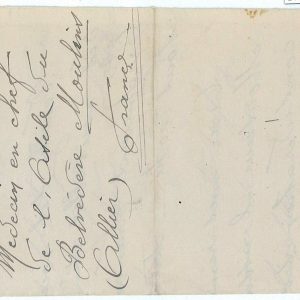 Médecin en chef
de l'Asile du
Belvédère Moulins
(Allier) France